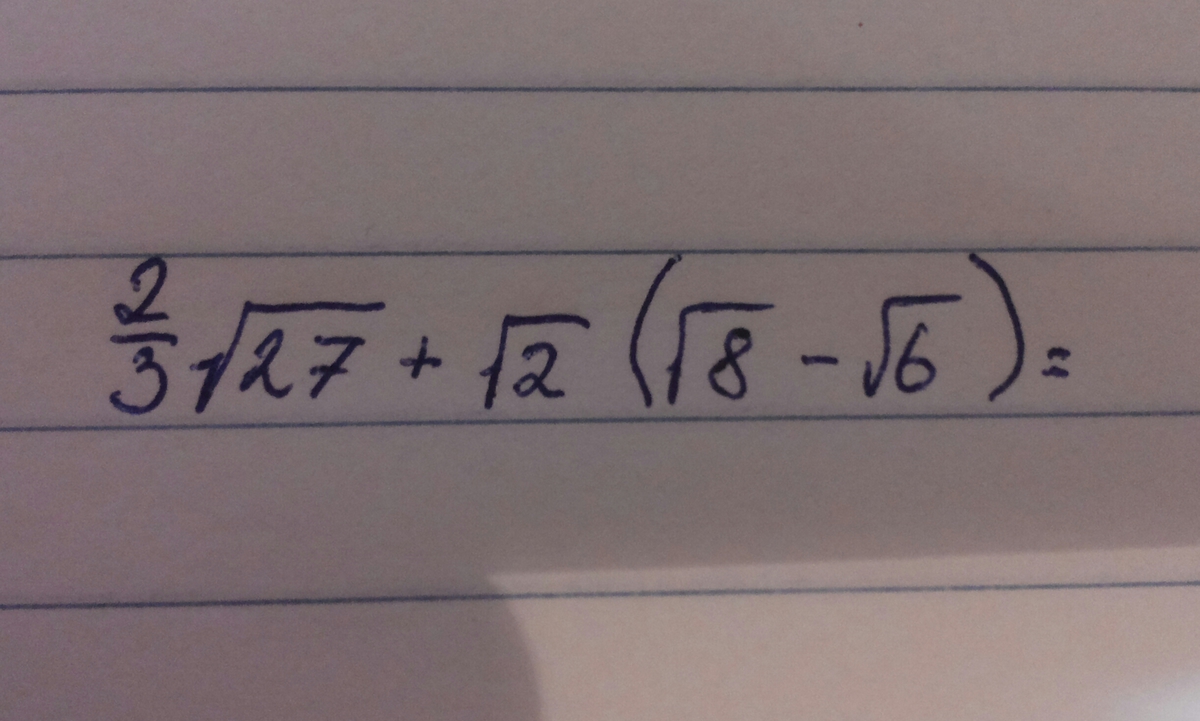 2/3√27 + √2 (√8 - √6) =